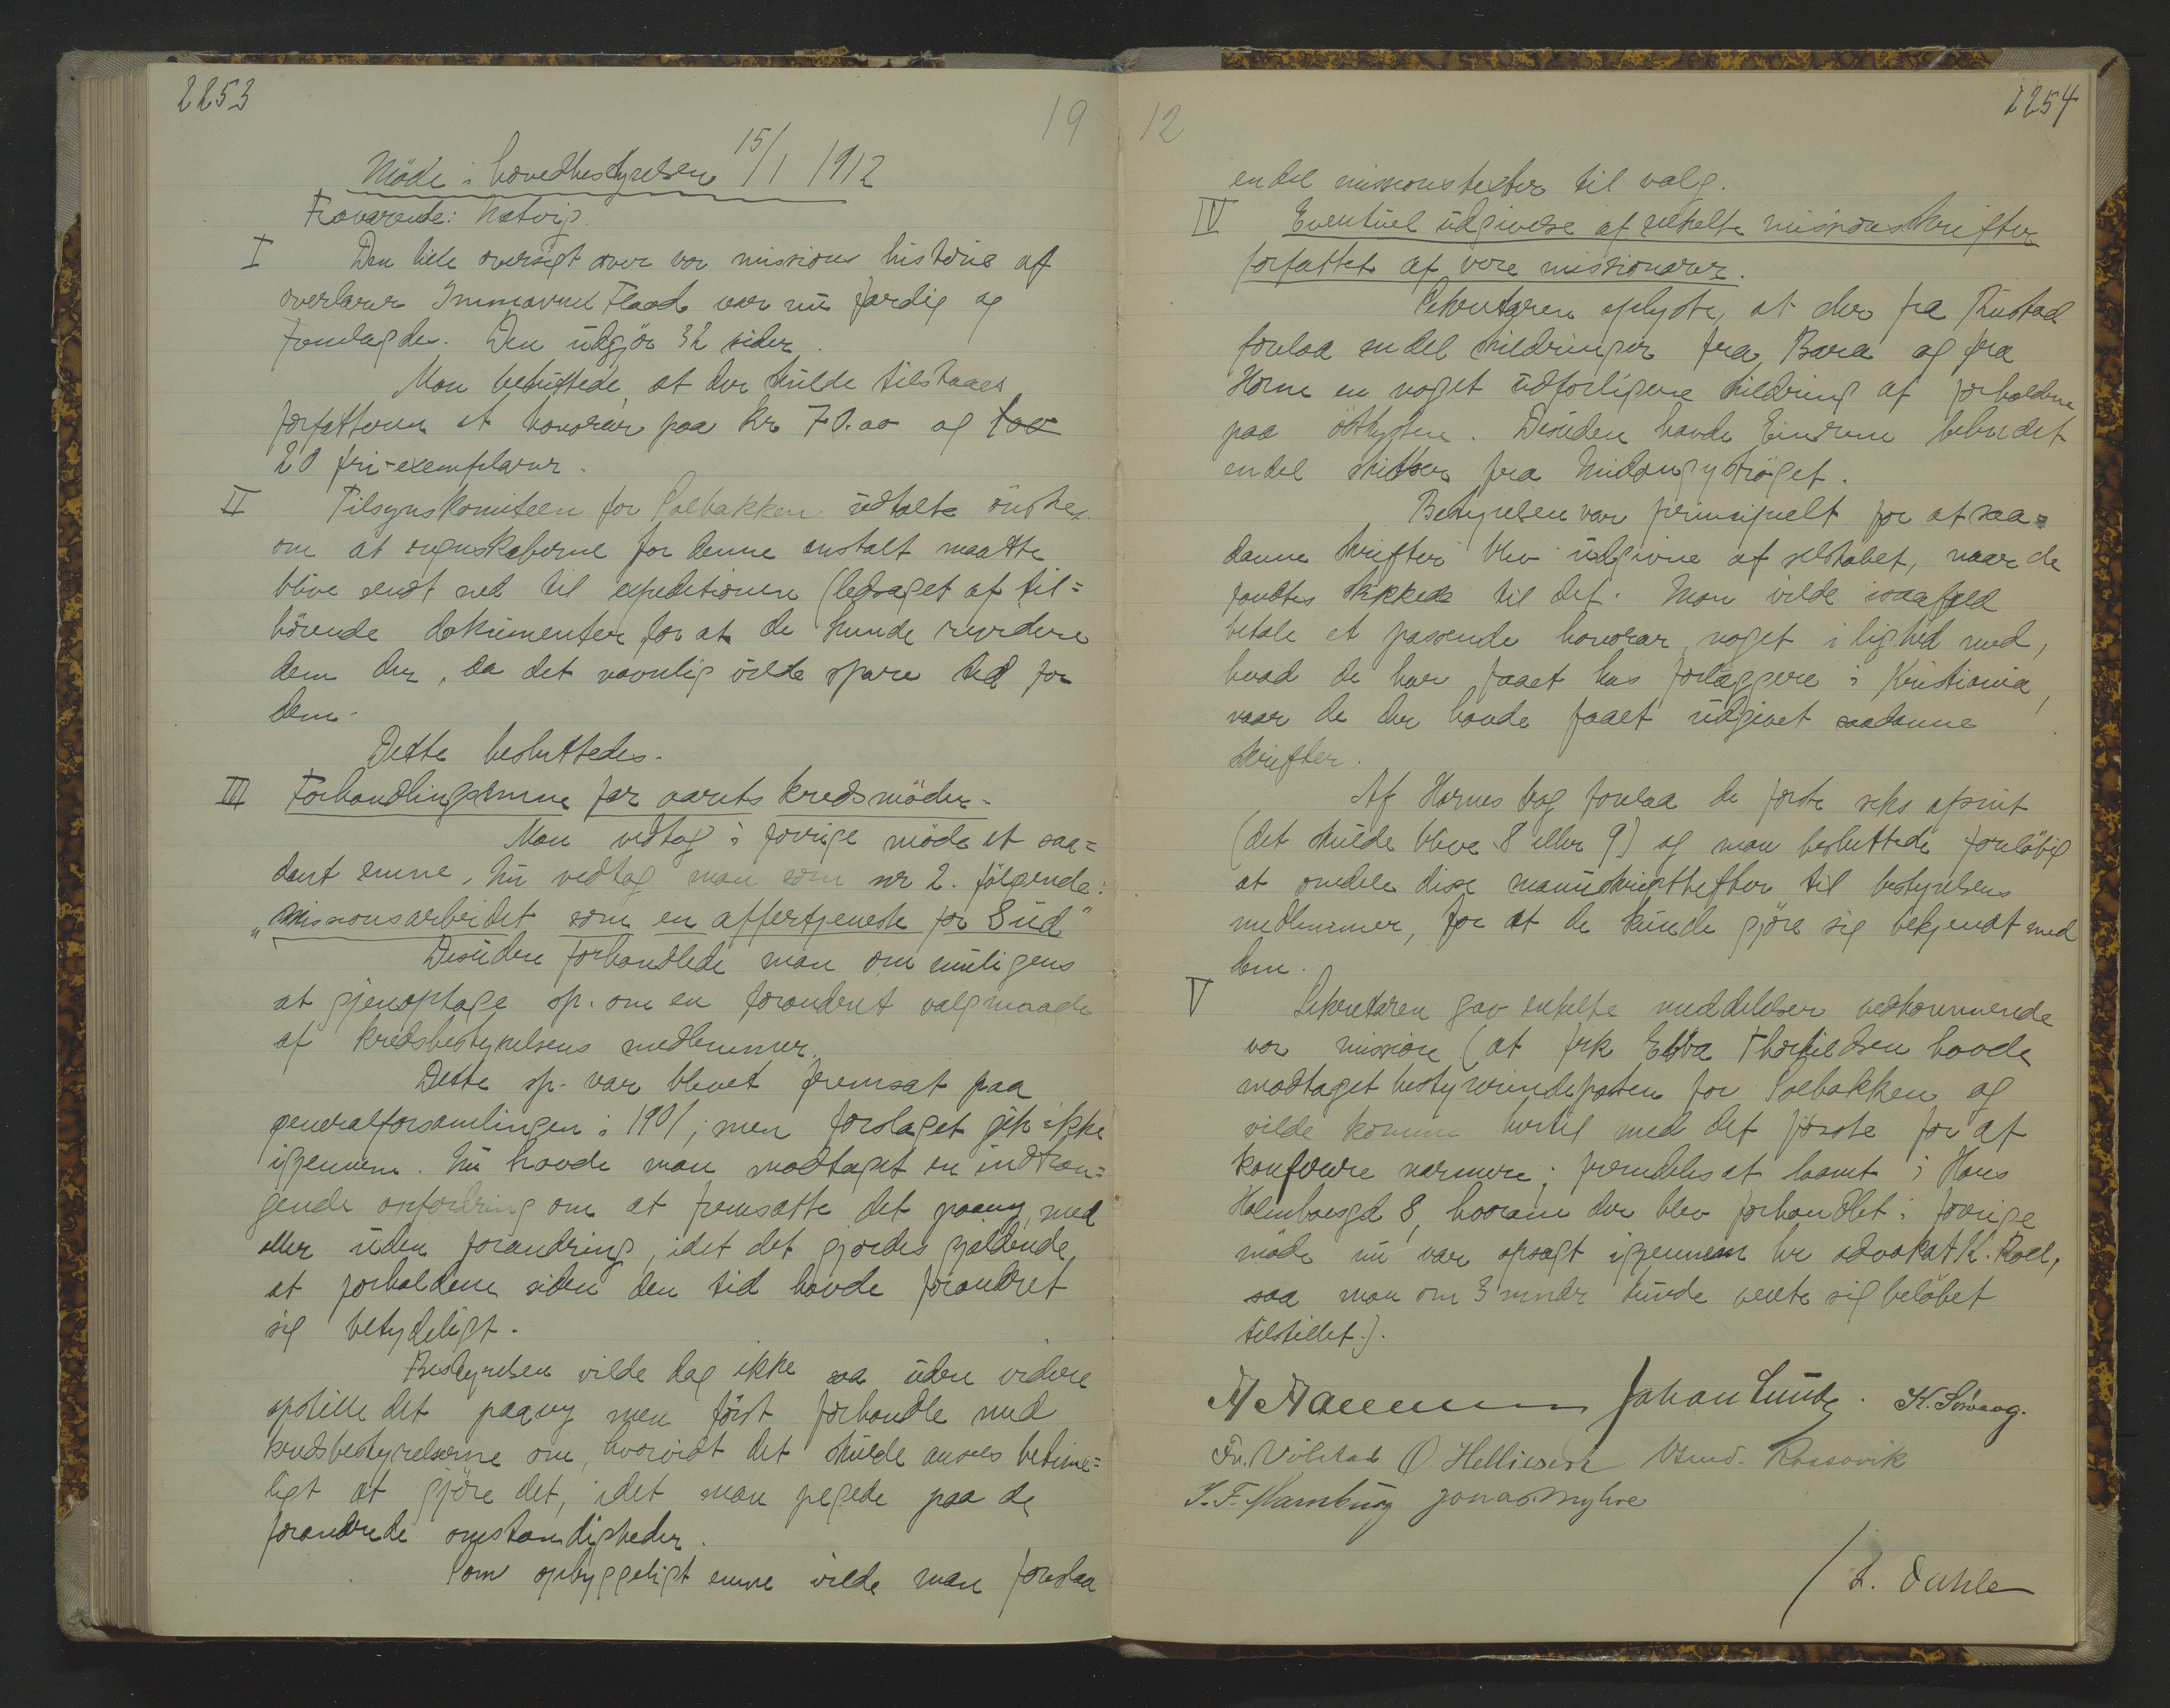 2253
19
Møde i hovedbestyrelsen 15/1 1912
Fraværende: Natvig.
I Den lille oversigt over vor missions historie af
overlærer Immanuel Flood var nu færdig og
fremlagdes. Den udgjør 32 sider.
Man besluttede, at der skulde tilstaaes
forfatteren et honorar paa kr 70.00 og
20 fri-exemplarer.
II Tilsynskomiteen for Solbakken udtalte ønske
om at regnskaberne for denne anstalt maatte
blive sendt ned til expeditionen (ledsaget af til=
hørende dokumenter for at de kunde revidere
dem der, da det navnlig vilde spare tid for
dem.
Dette besluttedes.
III Forhandlingsemne for aarets kredsmøder.
Man vedtog i forrige møde et saa=
dant emne. Nu vedtog man som nr 2. følgende:
„Missionsarbeidet som en offertjeneste for Gud"
Desuden forhandlede man om muligens
at gjenoptage sp. om en forandret valgmaade
af kredsbestyrelsens medlemmer.
Dette sp. var blevet fremsat paa
generalforsamlingen i 1901; men forslaget gik ikke
igjennem. Nu havde man modtaget en indtræn=
gende opfordring om at fremsætte det paany, med
eller uden forandring, idet det gjordes gjældende,
at forholdene siden den tid havde forandret
sig betydeligt.
Bestyrelsen vilde dog ikke saa uden videre
opstille det paany men først forhandle med
kredsbestyrelserne om, hvorvidt det skulde ansees betime=
ligt at gjøre det, idet man pegede paa de
forandrede omstændigheder.
Som opbyggeligt emne vilde man foreslaa
12
2254
endel missionstexter til valg.
IV Eventuel udgivelse af enkelte missionsskrifter
forfattet af vore missionærer.
Sekretæren oplyste, at der fra Rustad
forelaa endel skildringer fra Bara og fra
Horne en noget udførligere skildring af forholdene
paa østkysten. Desuden havde Einrem bebudet
endel skitser fra Midongystrøget.
Bestyrelsen var principielt for at saa=
danne skrifter blev udgivne af selskabet, naar de
fandtes skikkede til det. Man vilde isaafald
betale et passende honorar, noget i lighed med,
hvad de har faaet hos forlæggere i Kristiania,
naar de der havde faaet udgivet saadanne
skrifter.
Af Hornes bog forelaa de første seks afsnit
(det skulde blive 8 eller 9) og man besluttede foreløbig
at omdele disse manuskripthefter til bestyrelsens
medlemmer, for at de kunde gjøre sig bekjendt med
dem.
V Sekretæren gav enkelte meddelelser vedkommende
vor mission (at frk Ebba Thorkildsen havde
modtaget bestyrerindeposten for Solbakken og
vilde komme hertil med det første for at
konferere nærmere; fremdeles at laanet i Hans
Holmboesgd 8, hvorom der blev forhandlet i forrige
møde nu var opsagt igjennem hr advokat K. Roll,
saa man om 3 mndr kunde vente sig beløbet
tilstillet.).
Johan Lunde. K. Sørvaag.
O Helliesen Amd. Rossavik
Jonas Myhre
/ L. Dahle